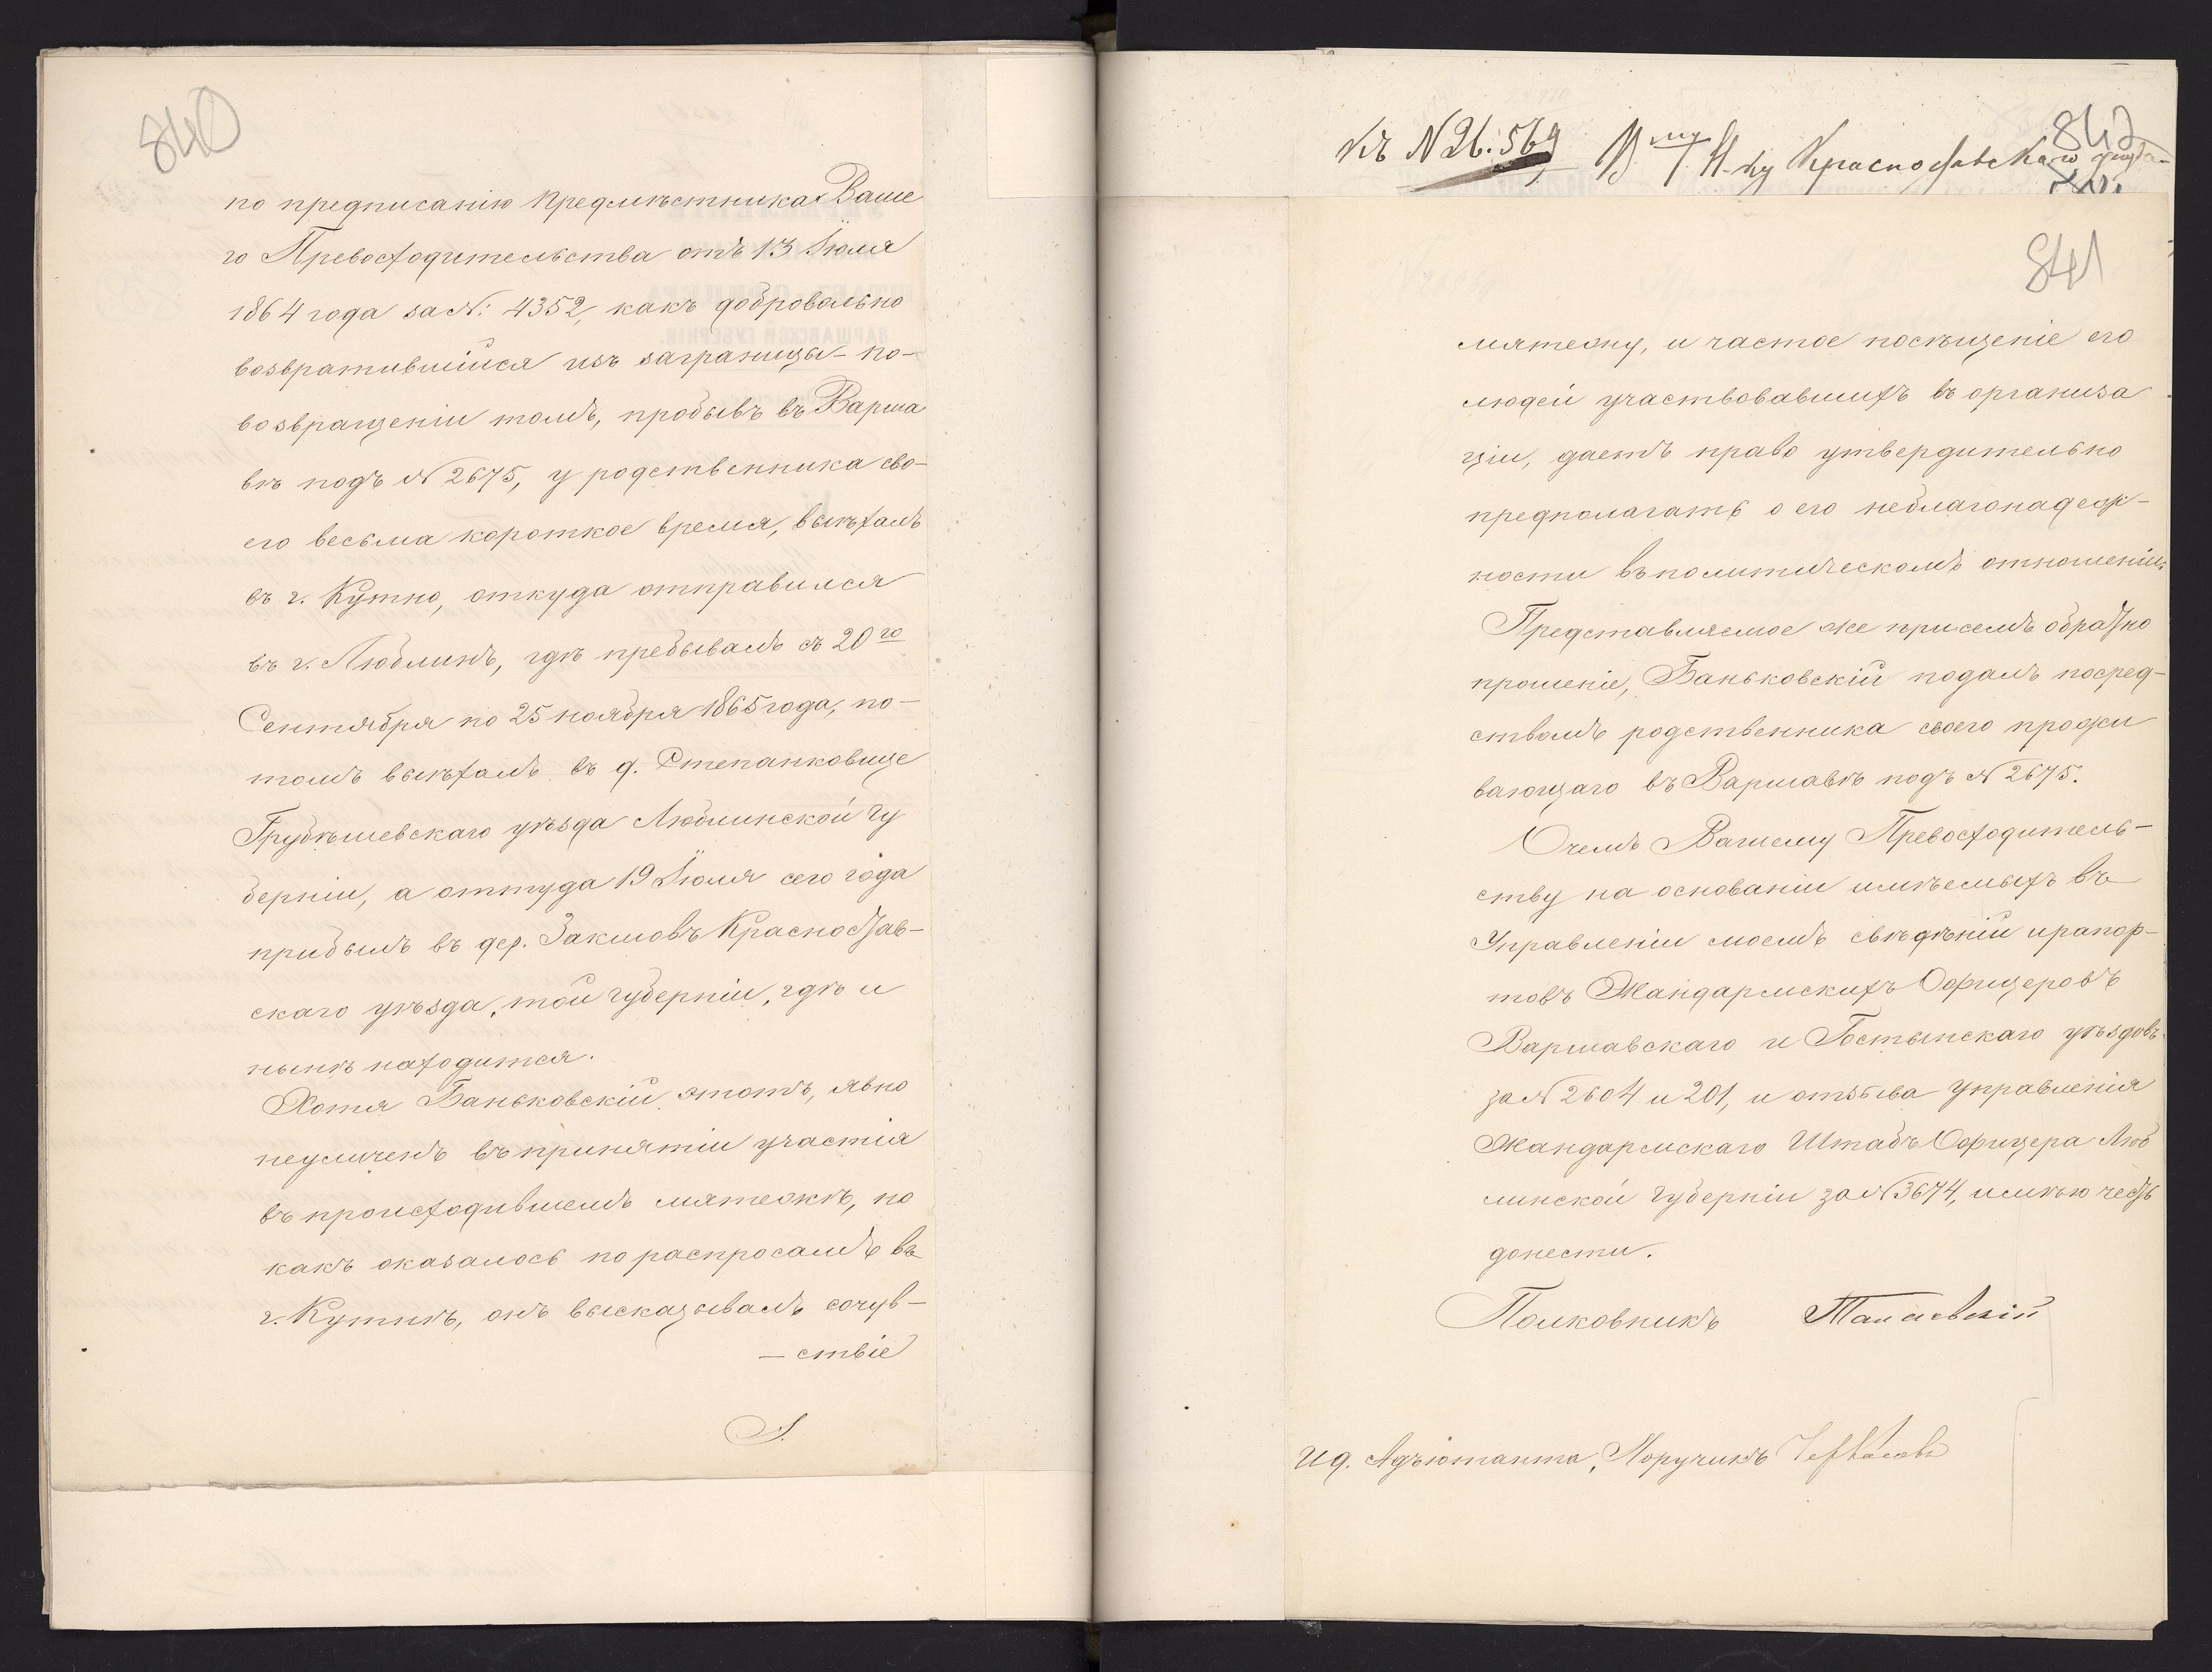 840
по предписанію предмѣстника Ваше
го Превосходительства отъ 13 Іюля
1864 года за №: 4352, какъ добровольно
возвратившійся изъ заграницы – по–
возвращеніи томъ, пробывъ въ Варша
вѣ подъ № 2675, у родственника сво–
его весьма короткое время, выѣхалъ
въ г. Кутно, откуда отправился
въ г. Люблинъ, гдѣ пребывалъ съ 20го
Сентября по 25 ноября 1865 года, по–
томъ выѣхалъ въ д. Степанковице
Грубѣшевскаго уѣзда Люблинской Гу
берніи, а оттуда 19 Іюля сего года
прибылъ въ дер. Закмовъ Красностав–
скаго уѣзда, той губерніи, гдѣ и
нынѣ находится.
Хотя Баньковскій этотъ, явно
неуличенъ въ принятіи участія
въ происходившемъ мятежѣ, но
какъ оказалось по распросамъ въ
г. Кутнѣ, онъ высказывалъ сочув–
– ствіе
Къ № 26.569 В. му Н-ку Красноставскаго
842
841
мятежу, и частое посѣщеніе его
людей участвовавшихъ въ организа
ціи, даетъ право утвердительно
предполагать о его неблагонадеж–
ности въ политическомъ отношеніи.
Представляемое же присемъ обратно
прошеніе, Баньковскій подалъ посред–
ствомъ родственника своего прожи
вающаго въ Варшавѣ подъ № 2675.
О чемъ Вашему Превосходитель–
ству на основаніи имѣемыхъ въ
Управленіи моемъ свѣдѣній и рапор–
товъ Жандармскихъ Офицеровъ
Варшавскаго и Гостынскаго уѣздовъ
за № 2604 и 201, и отзыва Управленія
Жандармскаго Штабъ Офицера Люб
линской Губерніи за № 3674, имѣю честь
донести.
Полковникъ
И д. Адъютанта, Поручикъ